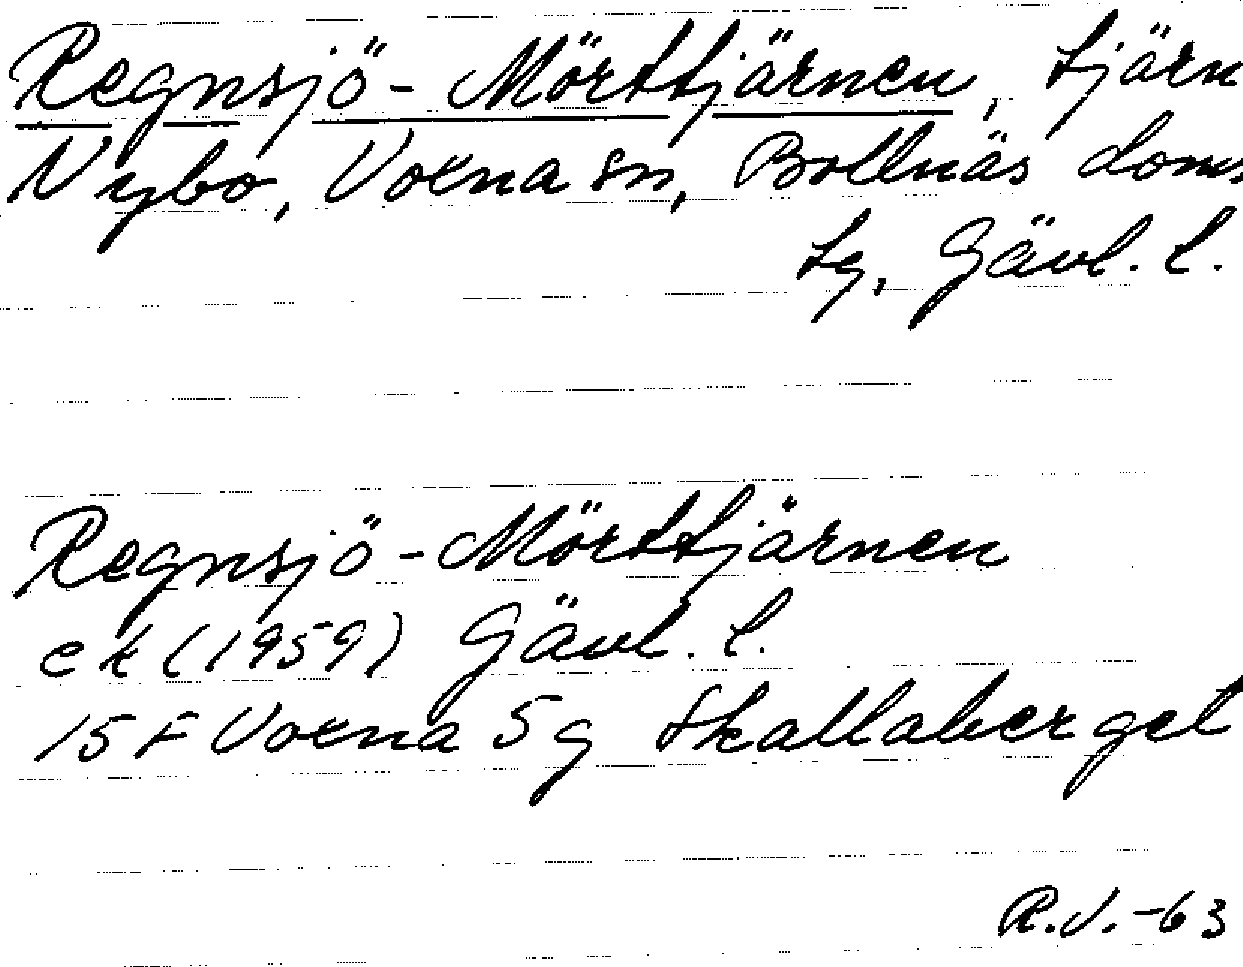 Regnsjö-Mörttjärnen, tjärn
Nybo, Voxna sn, Bollnäs doms
tg, Gävl. l.
Regnsjö-Mörttjärnen
ek (1959) Gävl. l.
15 F Voxna 5 g Skallaberget
R.J.-63